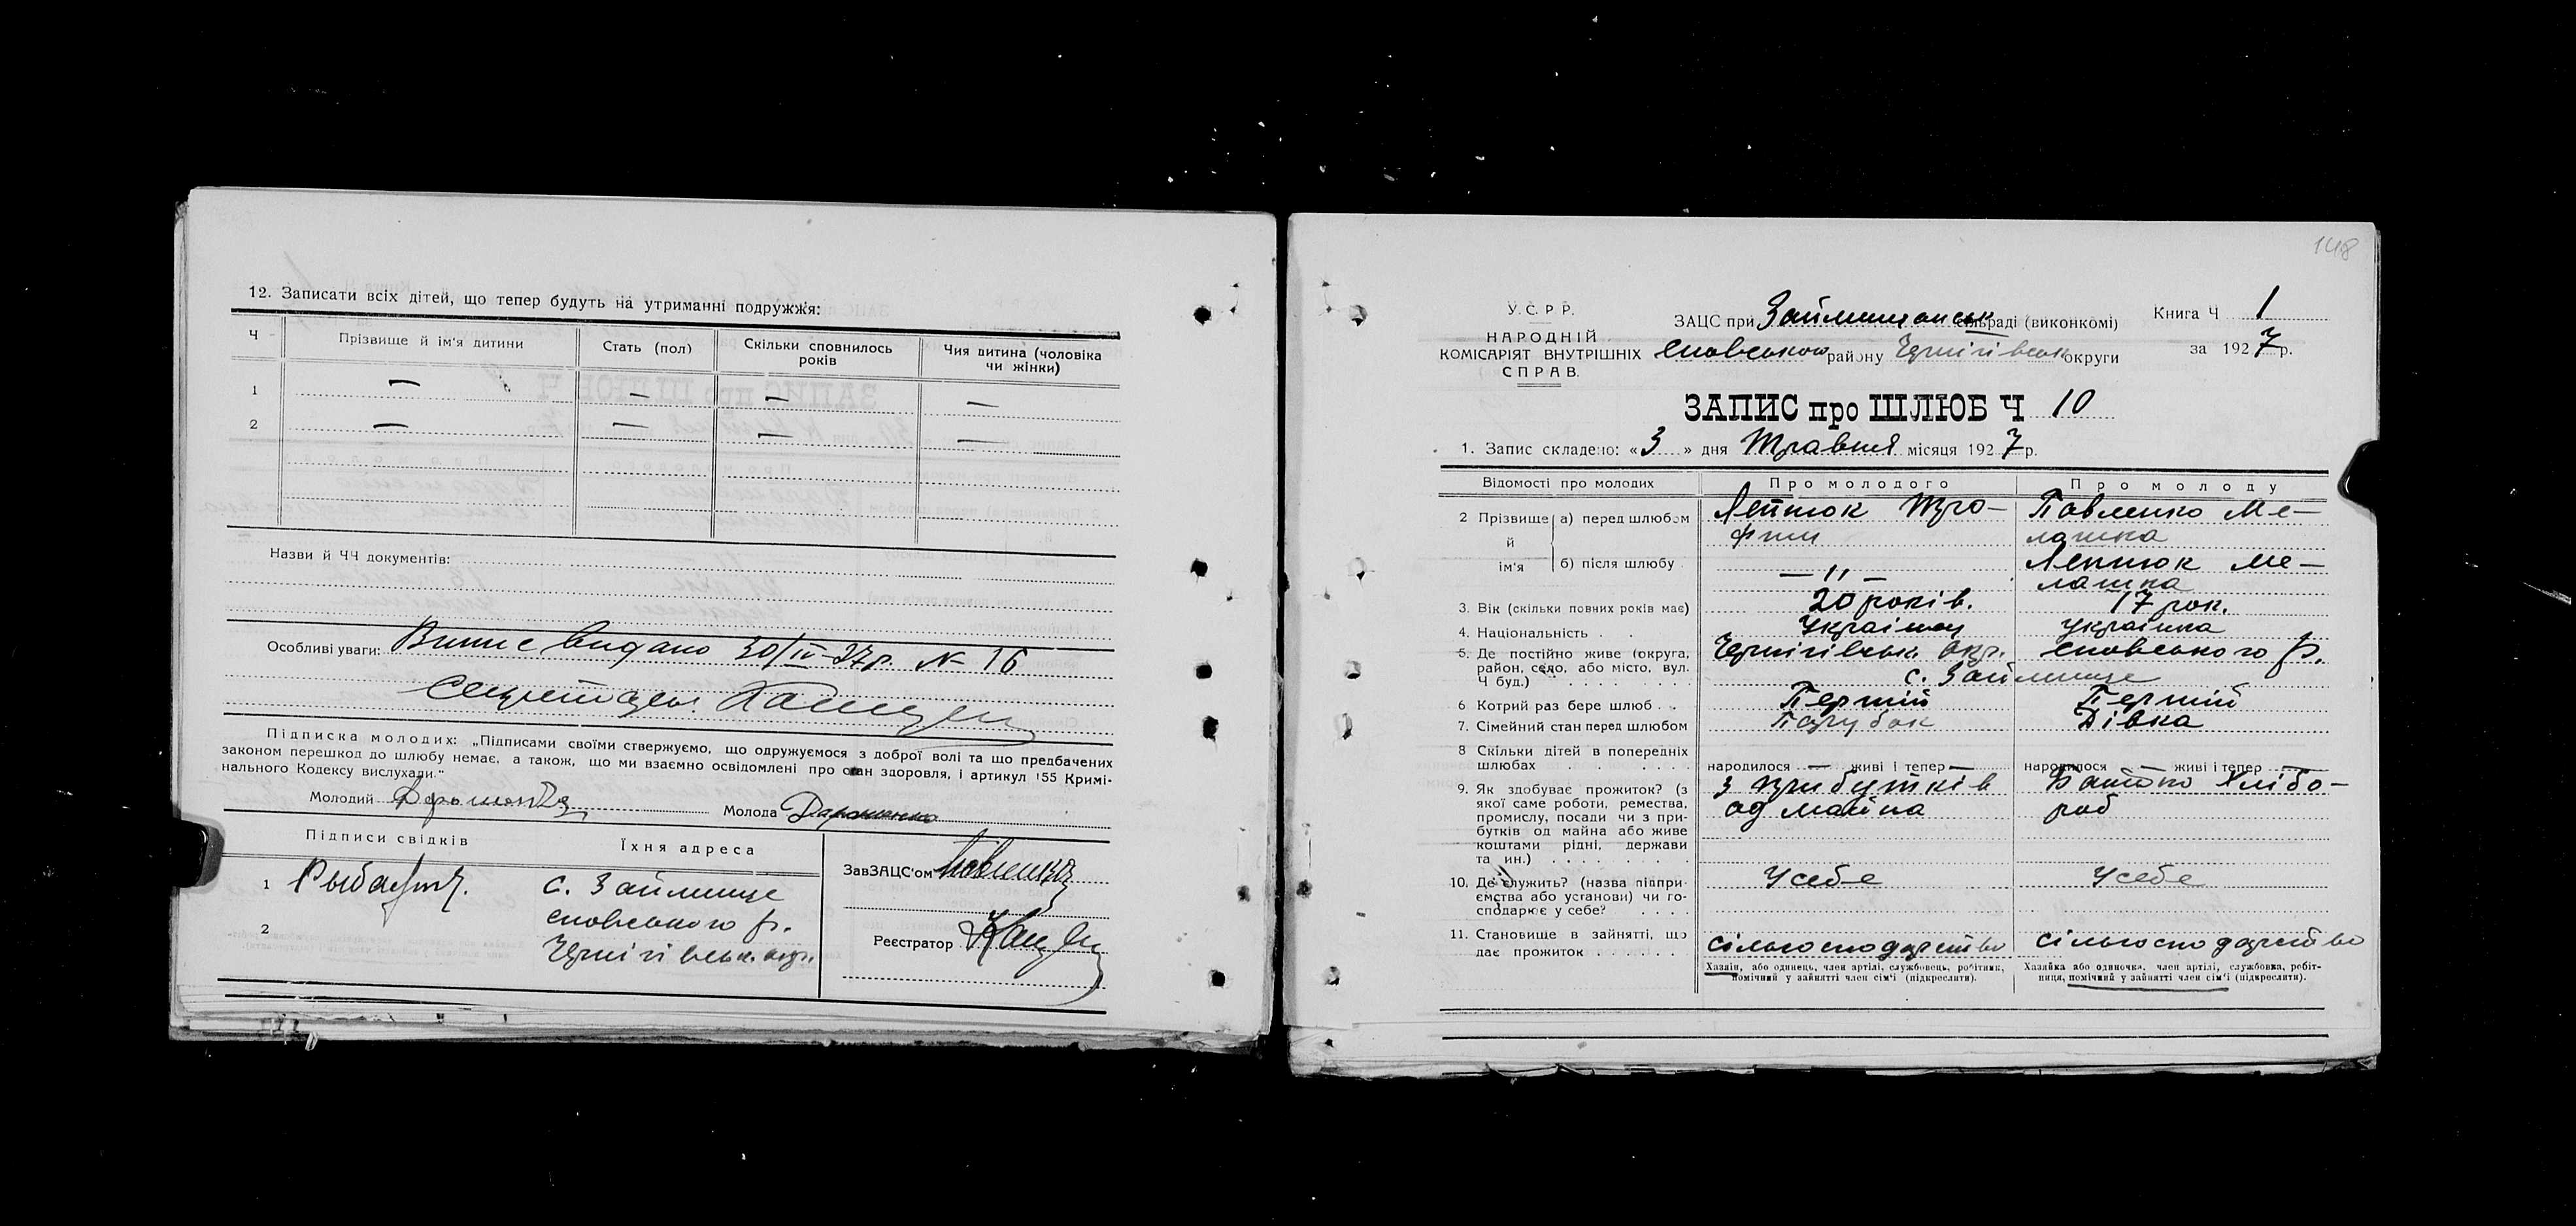 12. Записати всіх дітей, що тепер будуть на утриманні подружжя:
Ч Прізвище й ім'я дитини Стать (пол) Скільки сповнилось років Чия дитина (чоловіка чи жінки)
1 — — — —
2 — — — —
Назви й ЧЧ документів:
Особливі уваги: Витис видано 30/IV-27р. № 16
Секретарь
Підписка молодих: „Підписами своїми стверджуємо, що одружуємося з доброї волі та що предбачених
законом перешкод до шлюбу немає, а також, що ми взаємно освідомлені про стан здоровля, і артикул 155 Кримі-
нального Кодексу вислухали."
Молодий Молода
Підписи свідків Їхня адреса
ЗавЗАЦС'ом Павленко
1 с. Займище
сновського р.
2 Чернігівськ. окр.
Реєстратор
148
У.С.Р.Р.
НАРОДНІЙ
КОМІСАРІЯТ ВНУТРІШНІХ
СПРАВ.
ЗАЦС при Займищанськ сільраді (виконкомі)
Сновського району Чернігівськ округи
Книга Ч 1
за 1927 р.
ЗАПИС про ШЛЮБ Ч 10
1. Запис складено: «3» дня Травня місяця 1927 р.
Відомості про молодих Про молодого Про молоду
2 Прізвище й ім'я а) перед шлюбом Тро-фим Павленко Ме-лашка
б) після шлюбу —〃— Ме-лашка
3. Вік (скільки повних років має) 20 років. 17 рок.
4. Національність Українец Українка
5. Де постійно живе (округа, район, село, або місто, вул. Ч буд.) Чернігівськ. окр. Сновського р.
с. Займище
6. Котрий раз бере шлюб Перший Перший
7. Сімейний стан перед шлюбом Парубок Дівка
8 Скільки дітей в попередніх шлюбах народилося — живі і тепер — народилося — живі і тепер —
9. Як здобуває прожиток? (з якої саме роботи, ремества, промислу, посади чи з прибутків од майна або живе коштами рідні, держави та ин.) З прибутків од майна Хлібо-роб
10. Де служить? (назва підпри-ємства або установи) чи го-сподарює у себе? У себе У себе
11. Становище в зайнятті, що дає прожиток сільгосподарство сільгосподарство
Хазяїн, або одинець, член артілі, службовець, робітник, помічний у зайнятті член сім'ї (підкреслити).
Хазяйка або одиночка, член артілі, службовка, робіт-ниця, помічний у зайнятті член сім'ї (підкреслити).